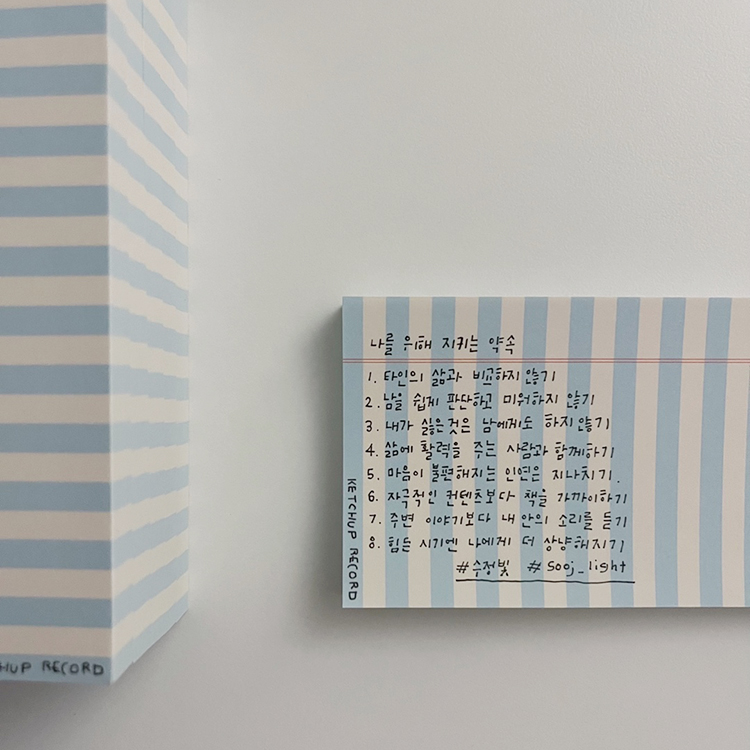 나를 위해 지키는 약속
1. 타인의 삶과 비교하지 않기
2. 남을 쉽게 판단하고 미워하지 않기
3. 내가 싫은것은 남에게도 하지않기
4. 삶에 활력을 주는 사람과 함께하기
5. 마음이 불편해지는 인연은 지나치기.
6. 자극적인 컨텐츠보다 책을 가까이하기
7. 주변 이야기보다 내 안의 소리를 듣기
8. 힘든 시기엔 나에게 더 상냥해지기
#수정빛 #sooj_light
KETCHUP RECORD
CHUP RECORD